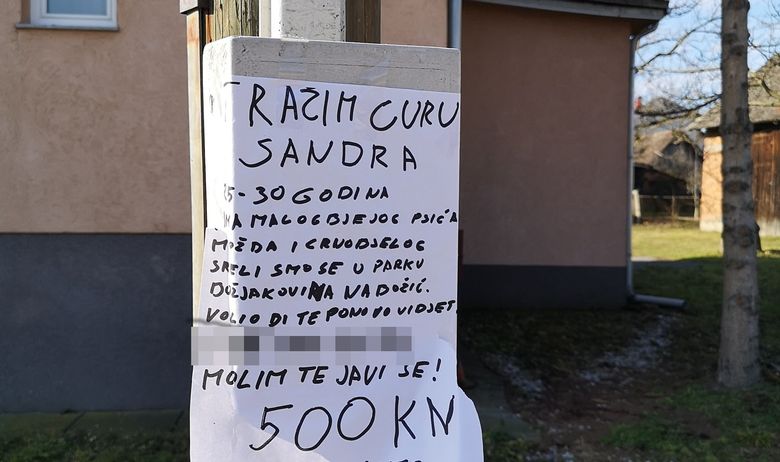 TRAŽIM CURU
SANDRA
25-30 GODINA
IMA MALOG BJELOG PSIĆA
MOŽDA I CRVOBJELOG
SRELI SMO SE U PARKU
DOLJAKOVINA NA DOŽIĆ.
VOLIO BI TE PONOVO VIDJET
MOLIM TE JAVI SE!
500 KN